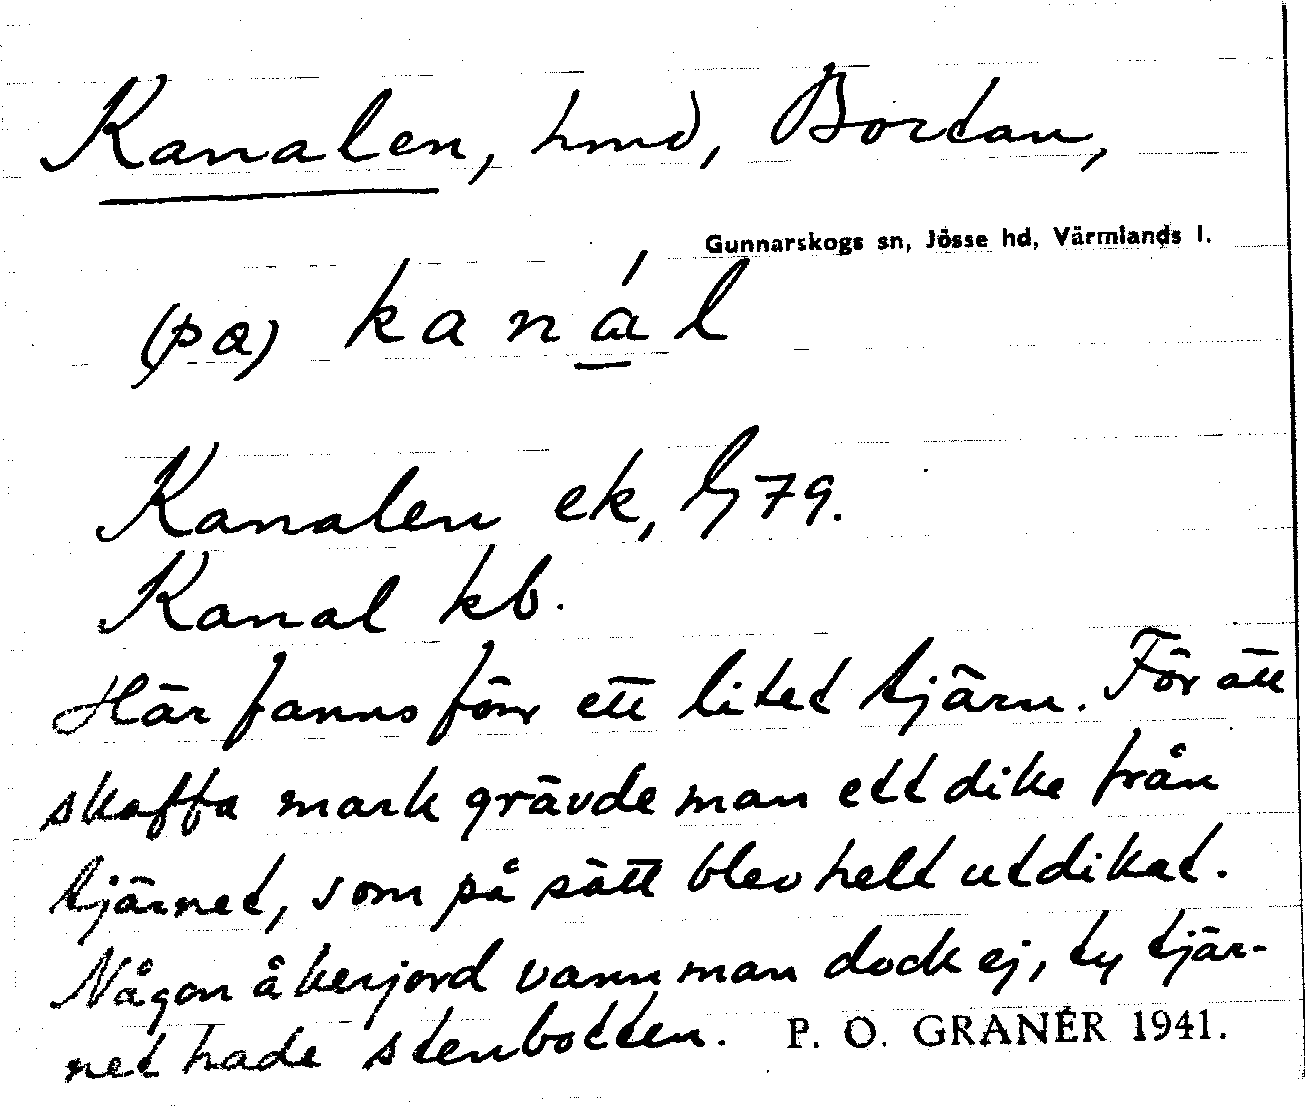 Kanalen, hmd, Bortan,
Gunnarskogs sn, Jösse hd, Värmlands l.
(pa) kanál
Kanalen ek, 79.
Kanal kb.
Här fanns förr ett litet tjärn. För att
skaffa mark grävde man ett dike från
tjärnet, som på sätt blev helt utdikat.
Någon åkerjord vann man dock ej, ty tjär-
net hade stenbotten. P. O. GRANÉR 1941.